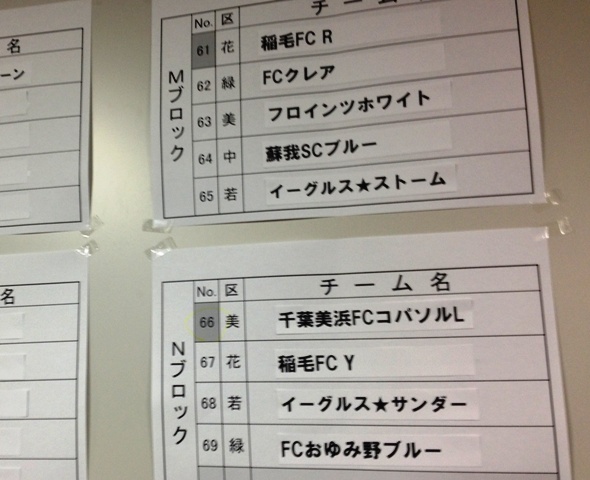 名
ーン
No. 区 チーム
Mブロック
61 花 稲毛FC R
62 緑 FCクレア
63 美 フロインツホワイト
64 中 蘇我SCブルー
65 若 イーグルス★ストーム
名
No. 区 チーム名
Nブロック
66 美 千葉美浜FCコパソルL
67 花 稲毛FC Y
68 若 イーグルス★サンダー
69 緑 FCおゆみ野ブルー